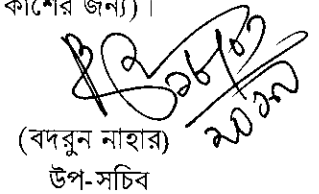 কাশের জন্য)।
(বদরুন নাহার)
উপ-সচিব